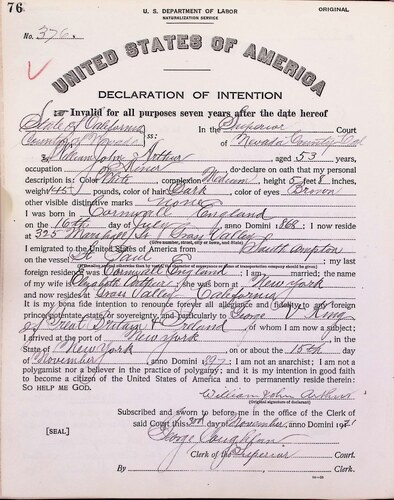 76
U. S. DEPARTMENT OF LABOR
NATURALIZATION SERVICE
ORIGINAL
No. 376.
UNITED STATES OF AMERICA
DECLARATION OF INTENTION
Invalid for all purposes seven years after the date hereof
State of California
County of Nevada ss:
In the Superior Court
of Nevada County Cal
I, William John Arthur aged 53 years,
occupation Miner do declare on oath that my personal
description is: Color White complexion Medium height 5 feet 8 inches,
weight 145 pounds, color of hair Dark color of eyes Brown
other visible distinctive marks none
I was born in Cornwall England
on the 16th day of July anno Domini 1868 I now reside
at 325 Marshall St Grass Valley
(Give number, street, city or town, and State)
I emigrated to the United States of America from South ampton
on the vessel St Paul my last
foreign residence was Cornwall England I am married; the name
of my wife is Elizabeth Arthur; she was born at New York
and now resides at Grass Valley California
It is my bona fide intention to renounce forever all allegiance and fidelity to any foreign
prince, potentate, state, or sovereignty, and particularly to George V King
of Great Britain & Ireland of whom I am now a subject;
I arrived at the port of New York, in the
State of New York on or about the 15th day
of November anno Domini 1887: I am not an anarchist; I am not a
polygamist nor a believer in the practice of polygamy; and it is my intention in good faith
to become a citizen of the United States of America and to permanently reside therein:
SO HELP ME GOD.
William John Arthur
(Original signature of declarant)
Subscribed and sworn to before me in the office of the Clerk of
[SEAL]
said Court this day of November, anno Domini 1921
George Coughlan
Clerk of the Superior Court.
By Clerk.